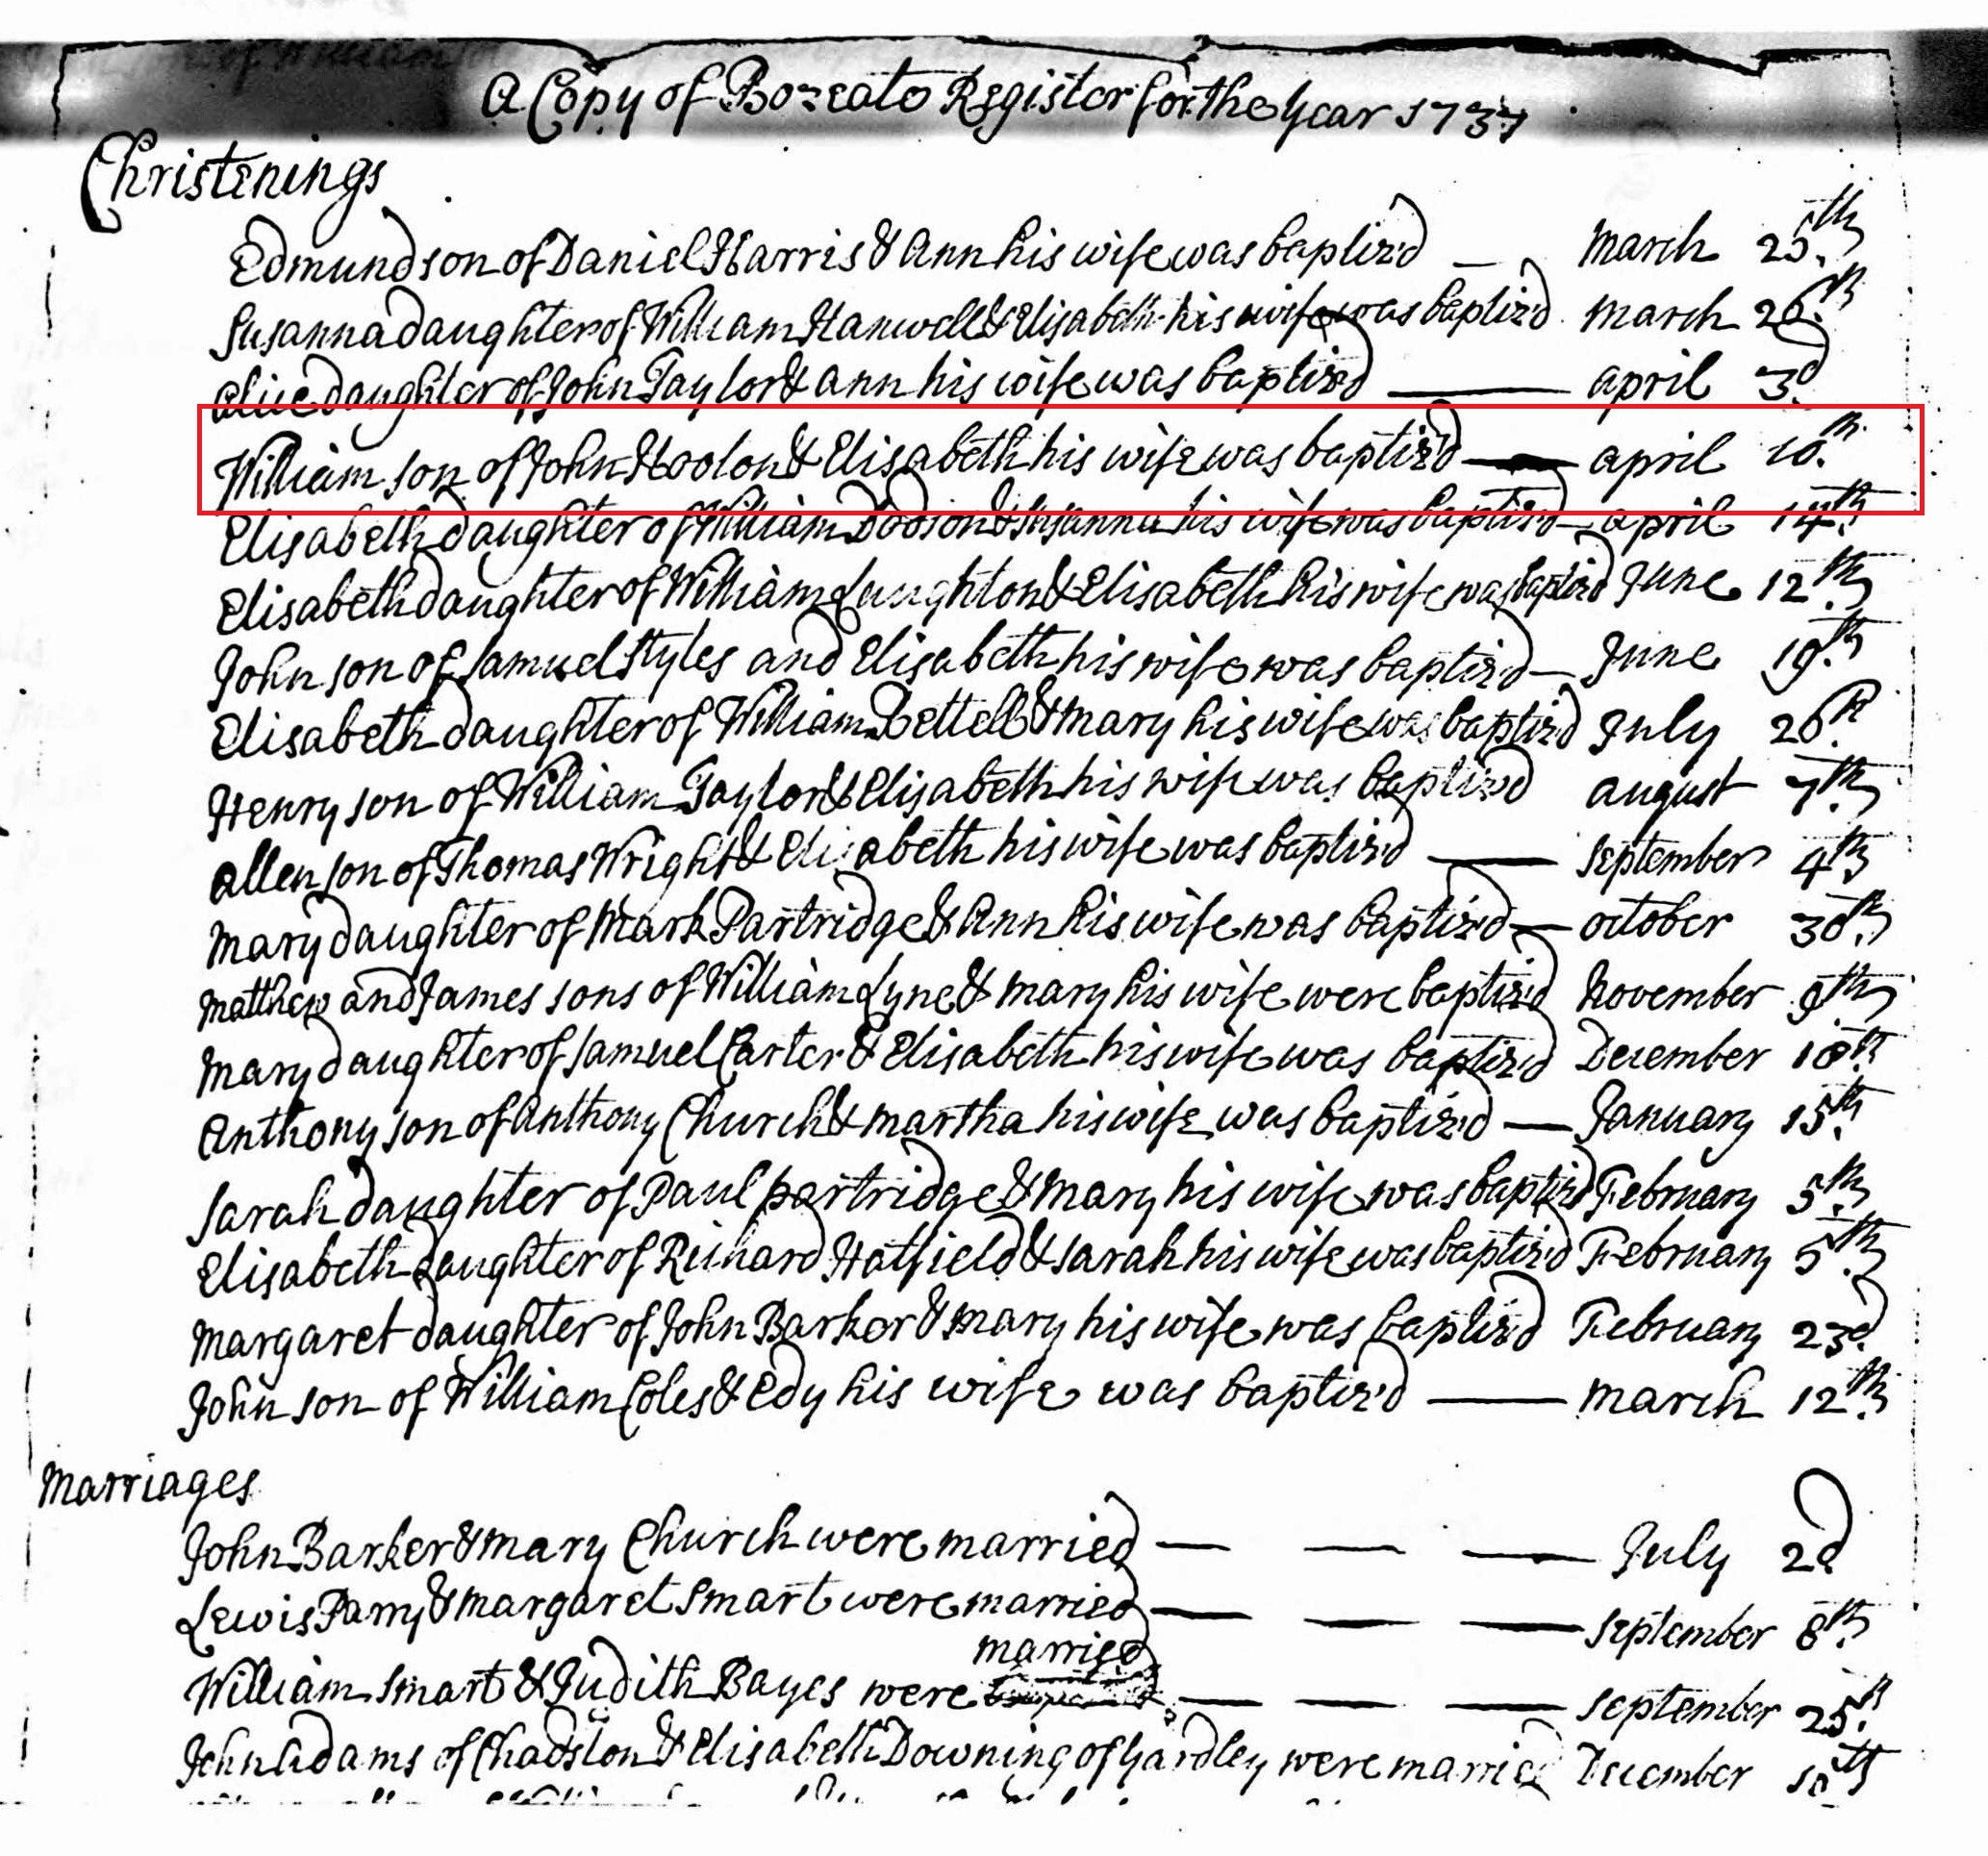 A Copy of Bozeato Register for the Year 1737
Christenings
Edmund son of Daniel Harris & Ann his wife was baptiz'd — March 25th
Susanna daughter of William Hanwell & Elisabeth his wife was baptiz'd March 26th
Alice daughter of John Taylor & Ann his wife was baptiz'd — april 3d
William son of John & Elisabeth his wife was baptiz'd — april 10th
Elisabeth daughter of William Dodson & Susanna his wife was baptiz'd — april 14th
Elisabeth daughter of William Laughton & Elisabeth his wife was baptiz'd June 12th
John son of Samuel Styles and Elisabeth his wife was baptiz'd — June 19th
Elisabeth daughter of William Bettell & Mary his wife was baptiz'd July 26th
Henry son of William Taylor & Elisabeth his wife was baptiz'd august 7th
allen son of Thomas Wright & Elisabeth his wife was baptiz'd — September 4th
Mary daughter of Mark Partridge & Ann his wife was baptiz'd — october 30th
Matthew and James sons of William Lyne & Mary his wife were baptiz'd November 9th
Mary daughter of Samuel Carter & Elisabeth his wife was baptiz'd December 18th
Anthony son of Anthony Church & Martha his wife was baptiz'd — January 15th
Sarah daughter of Paul partridge & Mary his wife was baptiz'd February 5th
Elisabeth daughter of Richard Hatfield & Sarah his wife was baptiz'd February 5th
Margaret daughter of John Barker & Mary his wife was baptiz'd February 23d
John son of William Coles & Edy his wife was baptiz'd — March 12th
Marriages
John Barker & Mary Church were married — — — July 2d
Lewis Parry & Margaret Smart were married — — — September 8th
married
William Smart & Judith Bayes were — — — September 25th
John Adams of Chadston & Elisabeth Downing of Yardley were married December 10th